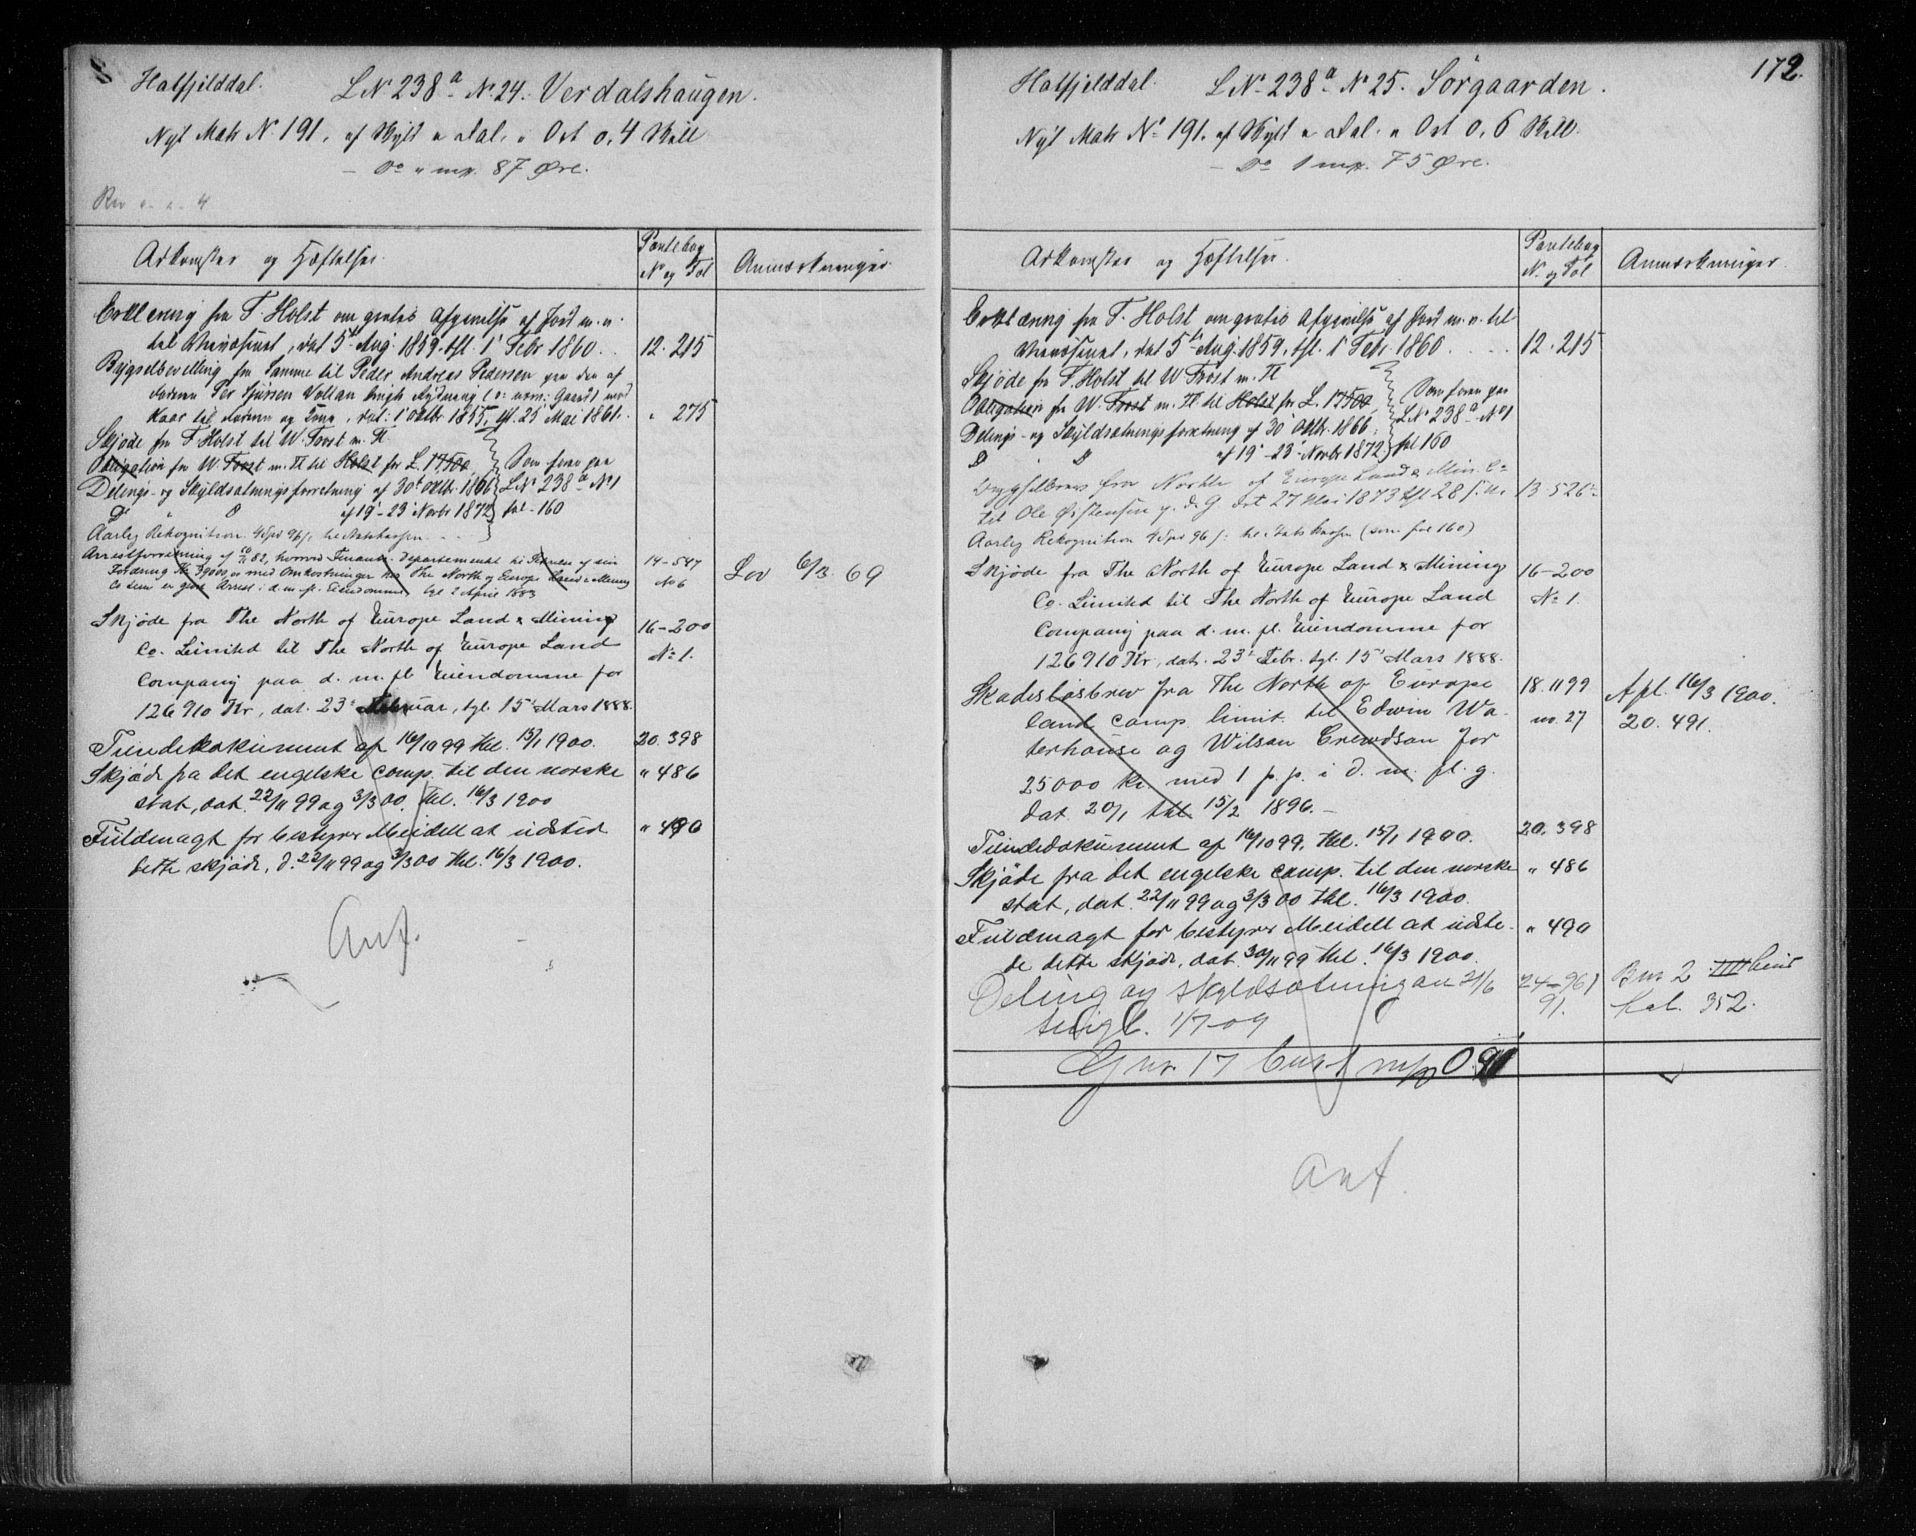 Hatfjelddal. LNo 238 a No 24. Verdalshaugen.
Nyt Matr No 191. af Skyld " Dal. " Ort 0, 4 Skill
Do " mp. 87 Øre.
Adkomster og Hæftelser.
Pantebog
No og Fol
Anmærkninger.
Erklæring fra F. Holst om gratis Afgivelse af Jord m. v.
til Skolevæsenet, dat 5te Aug. 1859. tgl. 1' Febr 1860.
12. 215
Bygselbevilling fra Samme til Peder Andreas Pedersen paa den af
Faderen Per Sjursen Vollan brugte Rydning
Kaar til Faderen og Kone, dat. 1' Oktbr. 1855, tgl. 25 Mai 1861.
" 275
Skjøde fra F. Holst til W. Forst m. Fl.
Obligation fra W. Forst m. Fl til Holst for L. 17500,
Delings- og Skyldsætningsforretning af 30te Oktbr. 1866
Do " D af 19'-23' Novbr 1872
Som foran paa
LNo 238 a No 1
fol. 160
Aarlig Rekognition 4 Spd 96 s. til Statskassen
Arrestforretning af 20/11 82, hvorved Finants Departementet til Sikkerhed for sin
Fordring Kr 39000,00 med Omkostninger hos The North of Europe Land & Mining
Co Lim er gjort Arrest i d. m. fl. Eiendomme tgl 2 April 1883
14-547
No 6
Lov 6/3. 69
Skjøde fra The North of Europe Land & Mining
Co. Limited til The North of Europe Land
Company paa d. m. fl Eiendomme for
126910 Kr, dat. 23' Februar, tgl. 15' Mars 1888.
16-200
No 1.
Tiendedokument af 16/10 99 thl. 15/1 1900.
20. 398
Skjøde fra det engelske comp. til den norske
stat, dat. 22/11 99 og 3/3 00, thl. 16/3 1900
" 486
Fuldmagt for bestyrer Meidell at udsted
dette skjøde, d. 22/11 99 og 3/3 00 thl. 16/3 1900.
" 490
Anf.
172.
Hatfjelddal. LNo 238 a No 25. Sörgaarden.
Nyt Matr No 191. af Skyld " Dal. " Ort 0, 6 Skill.
Do 1 mp. 75 Øre.
Adkomster og Hæftelser.
Pantebog
No og Fol
Anmærkninger.
Erklæring fra F. Holst om gratis Afgivelse af Jord m. v. til
Skolevæsenet, dat 5te Aug. 1859, tgl. 1' Febr 1860.
12. 215
Skjøde fra F. Holst til W. Forst m. Fl
Obligation fra W. Forst m. Fl til Holst for L. 17500,
Delings- og Skyldsætningsforretning af 30 Oktbr. 1866
D " D af 19'-23' Novbr 1872
Som foran paa
LNo 238 a No 1
fol 160
Bygselbrev fra North of Europe Land & Min. Co
til Ole Østensen dat 27 Mai 1873 tgl 28
13-526
Aarlig Rekognition 4 Spd 96 s. til Statskassen (som fol 160)
Skjøde fra The North of Europe Land & Mining
Co. Limited til The North of Europe Land
Company paa d. m. fl. Eiendomme for
126910 Kr, dat. 23' Febr. tgl. 15' Mars 1888.
16-200
No 1.
Skadesløsbrev fra The North of Europe
land comp. limit. til Edwin Wa-
terhouse og Wilson Crewdson for
25000 kr. med 1 p. p. i d. m. fl. g.
dat 20/1 thl. 15/2 1896.
18. 1199
no. 27
Afl. 16/3 1900.
20. 491.
Tiendedokument af 16/10 99, thl. 15/1 1900.
20. 398
Skjøde fra det engelske comp. til den norske
stat, dat. 22/11 99 og 3/3 00 thl. 16/3 1900.
" 486
Fuldmagt for bestyrer Meidell at udste-
de dette skjøde, dat. 30/11 99 thl. 16/3 1900.
" 490
Deling og skyldsætning av 21/6
tingl. 1/7-09
24-961
91.
Bnr 2
fol. 352.
Gnr. 17 bnr 1 m/p 0.91
Anf.